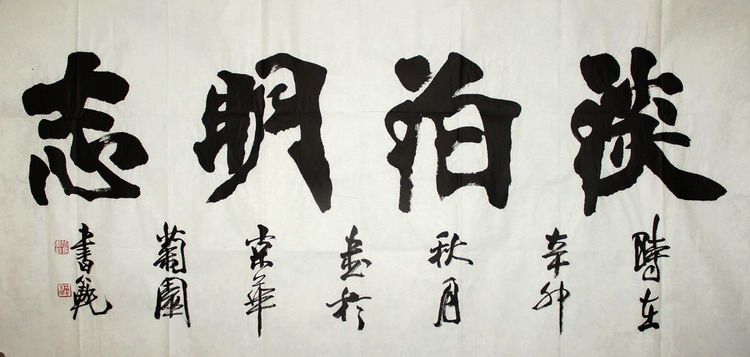 淡泊明志
時在
辛卯
秋月
書於
京華
菊園